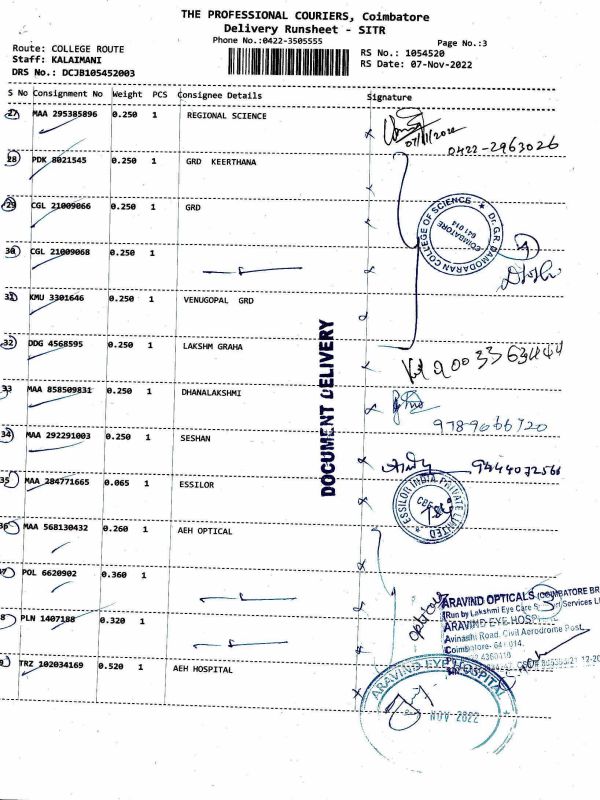 THE PROFESSIONAL COURIERS, Coimbatore
Delivery Runsheet - SITR
Phone No.:0422-3505555
Page No.:3
Route: COLLEGE ROUTE
Staff: KALAIMANI
DRS No.: DCJB105452003
RS No.: 1054520
RS Date: 07-Nov-2022
S No Consignment No Weight PCS Consignee Details Signature
27 MAA 295385896 0.250 1 REGIONAL SCIENCE
07/11/2022
0422-2963026
28 PDK 8021545 0.250 1 GRD KEERTHANA
29 CGL 21009066 0.250 1 GRD
Dr. G.R. DAMODARAN COLLEGE OF SCIENCE
COIMBATORE
641 014
30 CGL 21009068 0.250 1
31 KMU 3301646 0.250 1 VENUGOPAL GRD
32 DDG 4568595 0.250 1 LAKSHM GRAHA
33 MAA 858509831 0.250 1 DHANALAKSHMI
9789066720
34 MAA 292291003 0.250 1 SESHAN
9444072566
DOCUMENT DELIVERY
35 MAA 284771665 0.065 1 ESSILOR
ESSILOR INDIA PRIVATE LIMITED
CBE
36 MAA 568130432 0.260 1 AEH OPTICAL
7 POL 6620902 0.360 1
ARAVIND OPTICALS (COIMBATORE BR
Run by Lakshmi Eye Care Services L
ARAVIND EYE HOSP
Avinashi Road, Civil Aerodrome Post,
Coimbatore- 641 014.
8 PLN 1407188 0.320 1
9 TRZ 102034169 0.520 1 AEH HOSPITAL
ARAVIND EYE HOSPITAL
NOV 2022